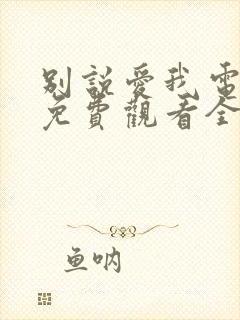 别說愛我電
免費觀看全
鱼呐